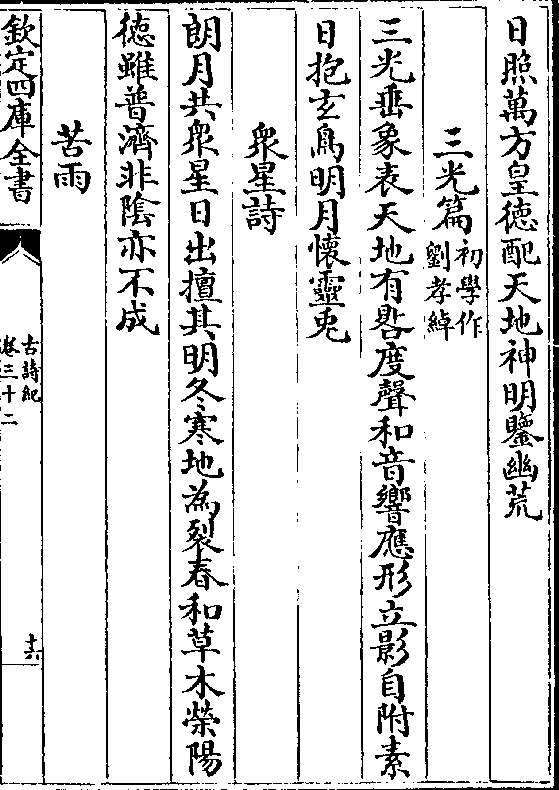 日照萬方皇徳配天地神明鑒幽荒
三光篇初學作劉孝綽
三光垂象表天地有晷度聲和音響應形立影自附素
日抱玄烏明月懷靈兎
衆星詩
朗月共衆星日出擅其明冬寒地為裂春和草木榮陽
徳雖普濟非陰亦不成
苦雨
欽定四庫全書
古詩紀
卷三十二
十六